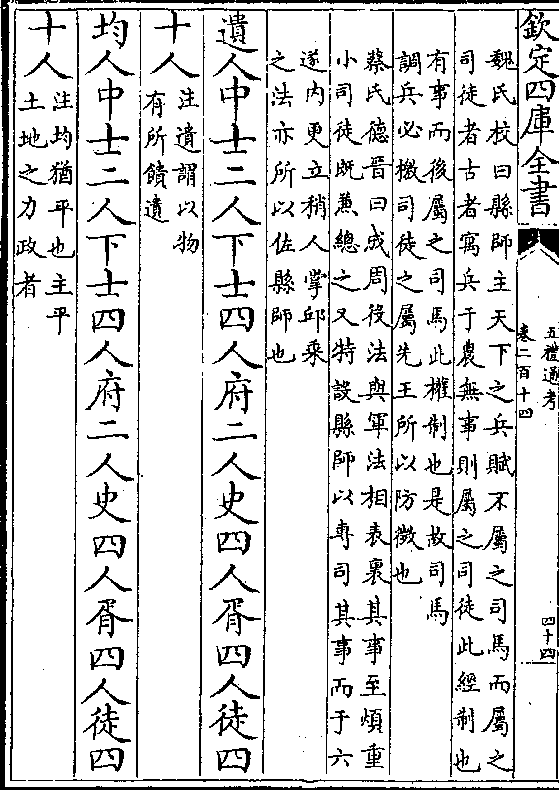 欽定四庫全書
五禮通考
卷二百十四
四十四
魏氏校曰縣師主天下之兵賦不屬之司馬而屬之
司徒者古者寓兵于農無事則屬之司徒此經制也
有事而後屬之司馬此權制也是故司馬
調兵必檄司徒之屬先王所以防微也
蔡氏德晉曰成周役法與軍法相表裏其事至煩重
小司徒既兼總之又特設縣師以專司其事而于六
遂內更立稍人掌邱乘
之法亦所以佐縣師也
遺人中士二人下士四人府二人史四人胥四人徒四
十人
注遺謂以物
有所饋遺
均人中士二人下士四人府二人史四人胥四人徒四
十人
注均猶平也主平
土地之力政者